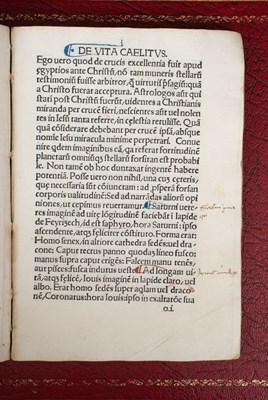 i
DE VITA CAELITVS.
Ego uero quod de crucis excellentia fuit apud
ęgyptios ante Christū, nō tam muneris stellarū
testimoniū fuisse arbitror, ꝗ̄ uirtutis p̄sagiū: quā
a Christo fuerat acceptura. Astrologos aūt qui
stati post Christū fuerūt, uidentes a Christianis
miranda per crucē fieri, nesciētes aūt uel nolen
tes in Iesū tanta referre, in cęlestia retulisse. Quā
quā cōsiderare debebant per crucē ipsā, absque
nomine Iesu miracula minime perpetrari. Conue
nire qdem imaginibus eā, qa referat fortitudinē
planetarū omniūqꝫ stellarū forsitan est probabi
le. Non tamē ob hoc duntaxat ingentē habere
potentiā. Posse uero nōnihil, una cuꝫ cęteris,
que necessaria sūt cōiunctam: ad ꝓsperā forsan
corporis ualitudinē. Sed ad narrādas aliorū opi
niones, ut cepimus reuertamur. Saturni uete-
res imaginē ad uitę lōgitudinē faciebāt ī lapide
de Feyrizech, id est saphyro, hora Saturni: ipso
ascendente, atqꝫ feliciter cōstituto. Forma erat:
Homo senex, in altiore cathedra sedēs uel draco
cone: Caput tectus panno quodaꝫ lineo fusco:
manus supra caput erigēs: Falcem manu tenēs,
aut pisces: fusca indutus ueste. Ad longam ui-
tā, atqꝫ felicē, Iouis imaginē in lapide claro, uel
albo. Erat homo sedēs super aqlam uel draco
nē, Coronatus: hora Iouis: ipso in exaltatiōe sua
o.i.